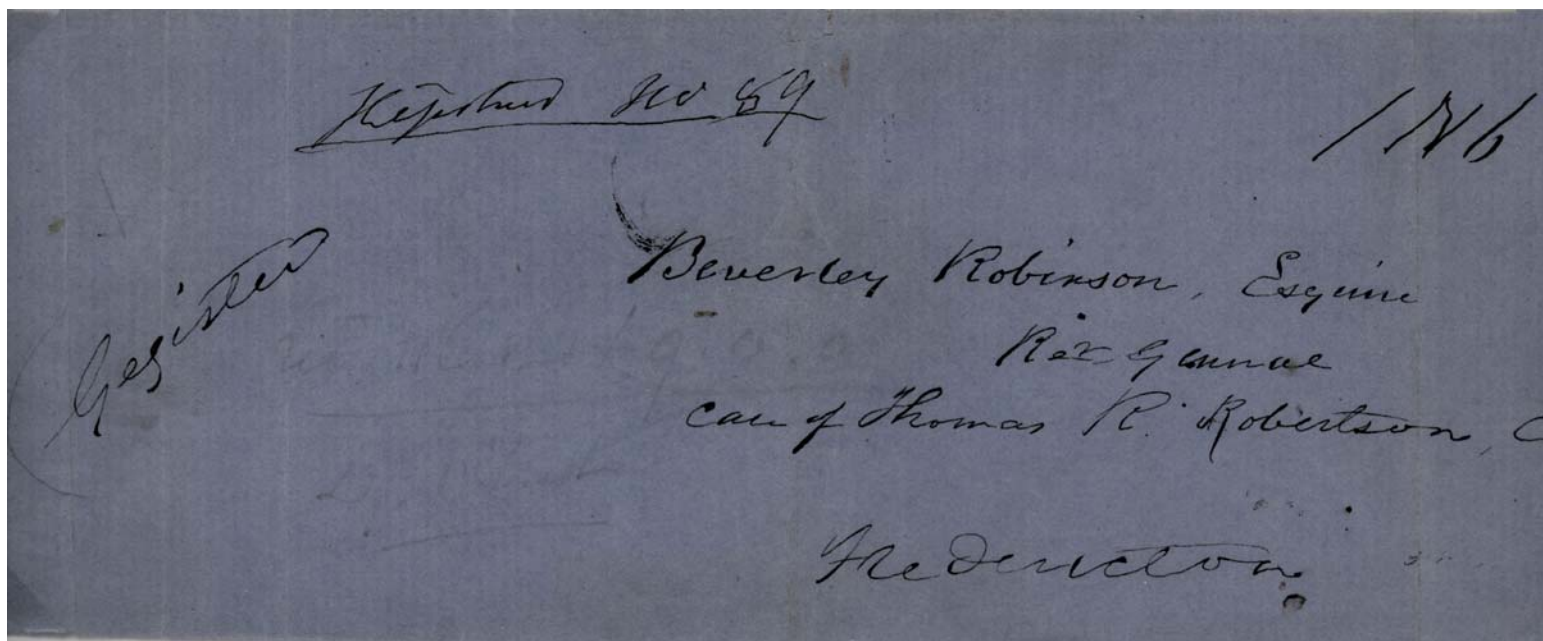 Registered No 59
1 N b
Register
Beverley Robinson, Esquire
General
care of Thomas R. Robertson,
Fredericton